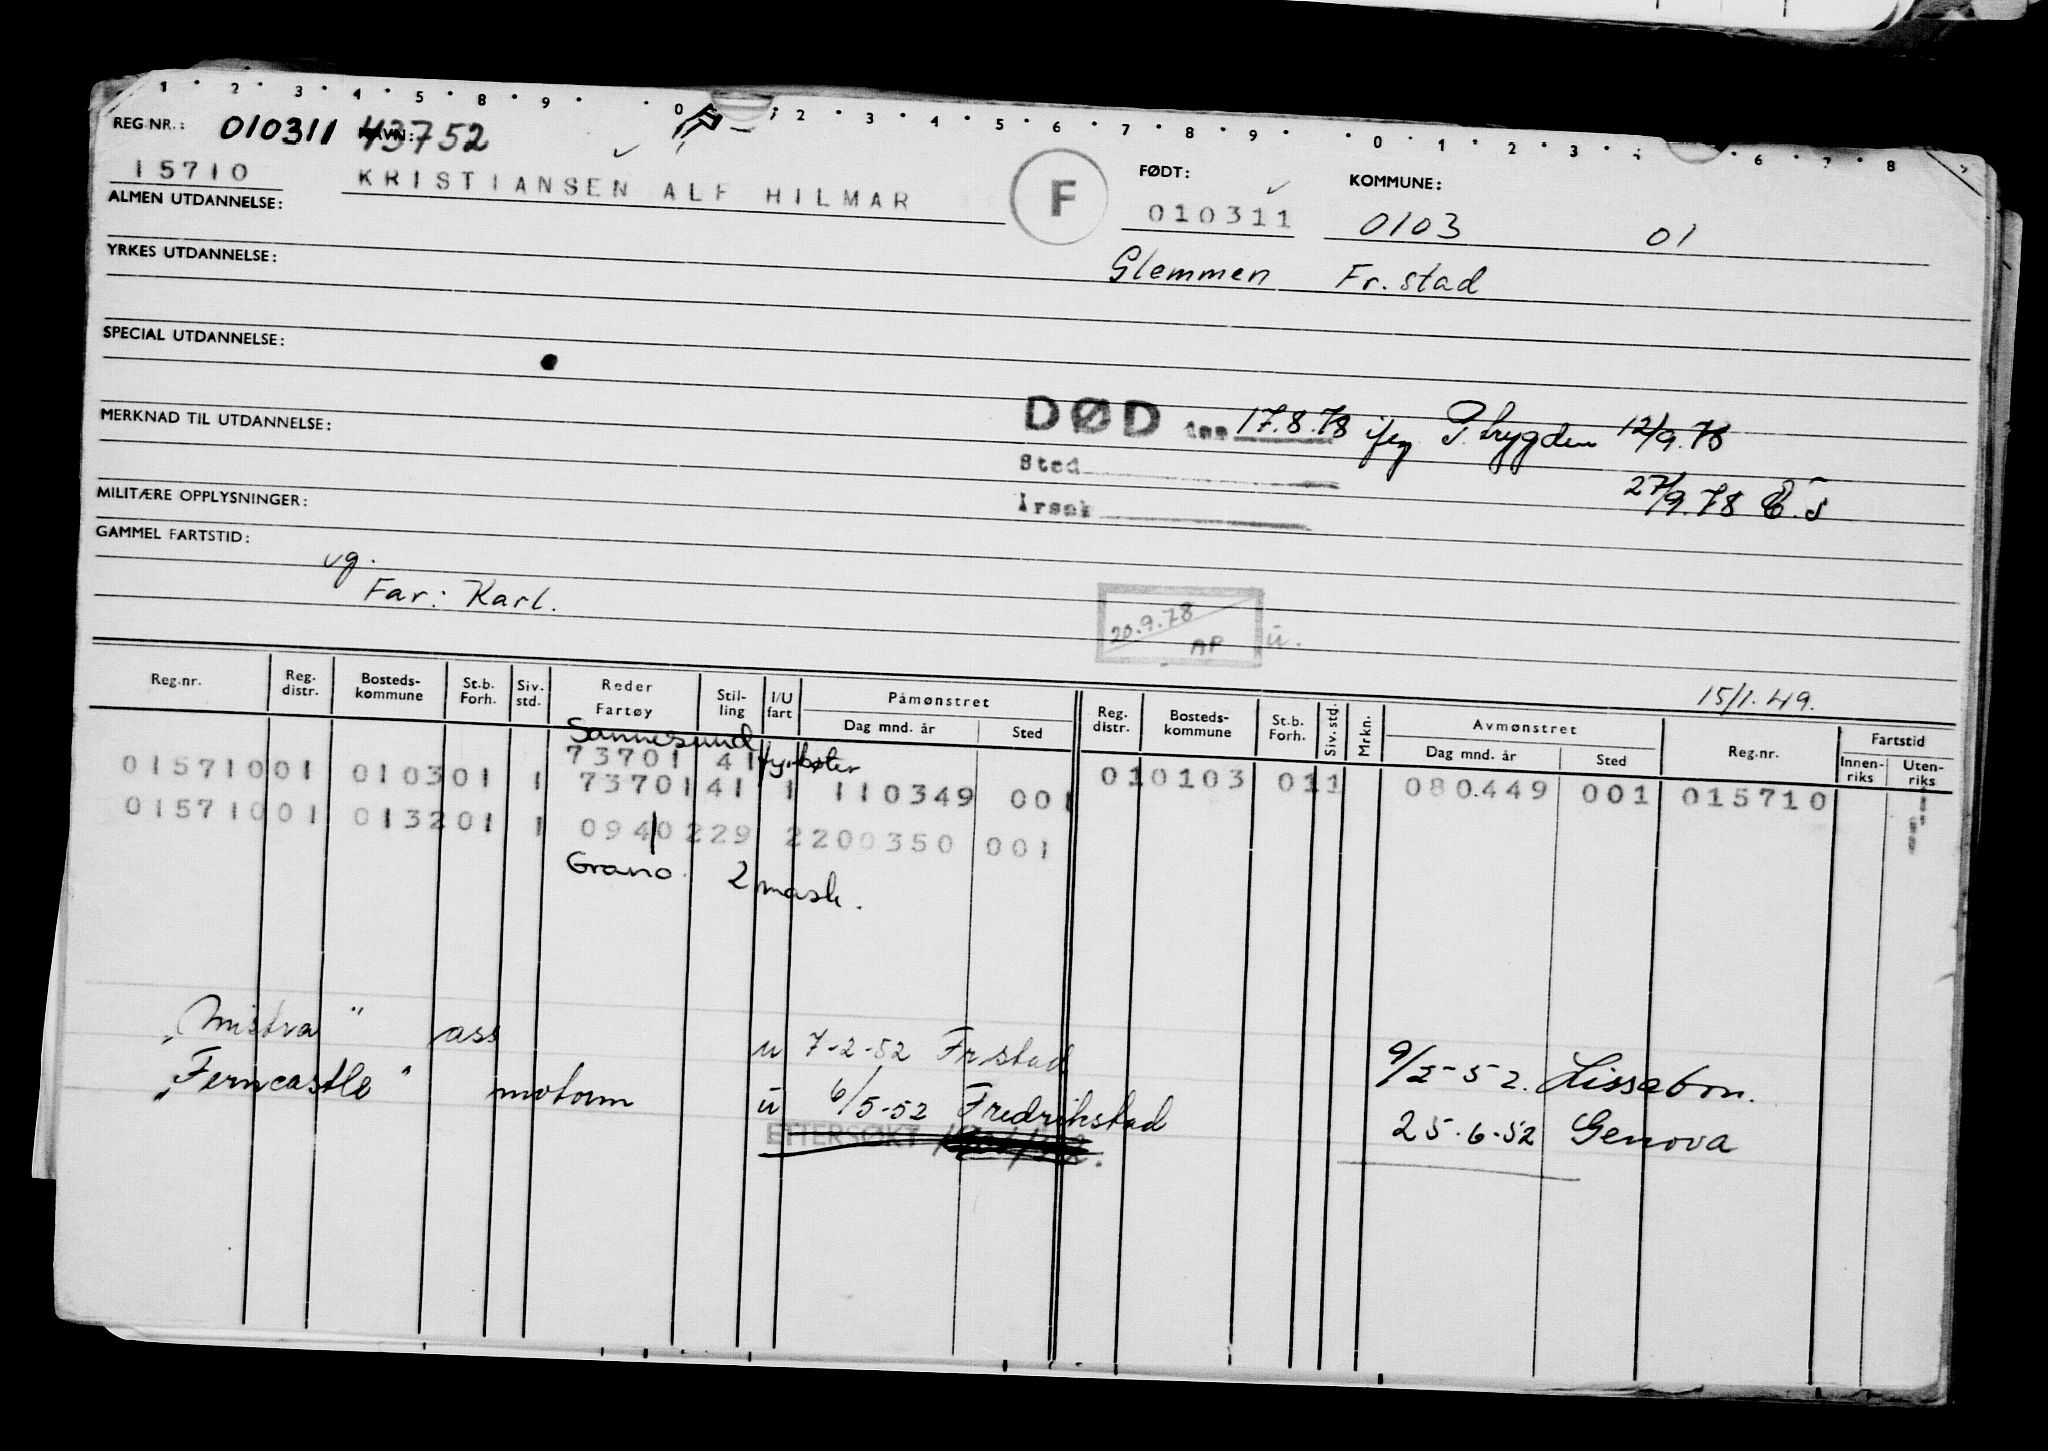 1 2 3 4 5 8 9 0 2 3 4 5 6 7 8 9 0 1 2 3 6 7 8
REG.NR.: 010311 43752
NAVN:
15710 KRISTIANSEN ALF HILMAR F
FØDT: 010311
KOMMUNE: 0103 01
ALMEN UTDANNELSE:
Glemmen Fr.stad
YRKES UTDANNELSE:
SPECIAL UTDANNELSE:
MERKNAD TIL UTDANNELSE:
DØD den 17.8.78 iføg P.trygden 12/9.78
Sted
27/9.78
Årsak
MILITÆRE OPPLYSNINGER:
GAMMEL FARTSTID:
vg.
Far: Karl.
20.9.78
AP ü.
15/1.49.
Reg.nr. Reg. distr. Bosteds-kommune St.b. Forh. Siv. std. Reder Fartøy Stil-ling I/U fart Påmønstret Dag mnd. år Sted Reg. distr. Bosteds-kommune St.b. Forh. Siv. std. Mrkn. Avmønstret Dag mnd. år Sted Reg.nr. Fartstid Innen-riks Uten-riks
Sannesund fyrbøter
73701 41
01571001 010301 1 7370141 1 110349 001 010103 011 080449 001 015710
01571001 013201 1 0940229 2200350 001
Grano. 2 mask.
"Mistra" ass u 7-2-52 Frstad 9/2-52. Lissabon.
"Ferncastle" motorm ü 6/5-52 Fredrikstad 25-6-52 Genova
ETTERSØKT